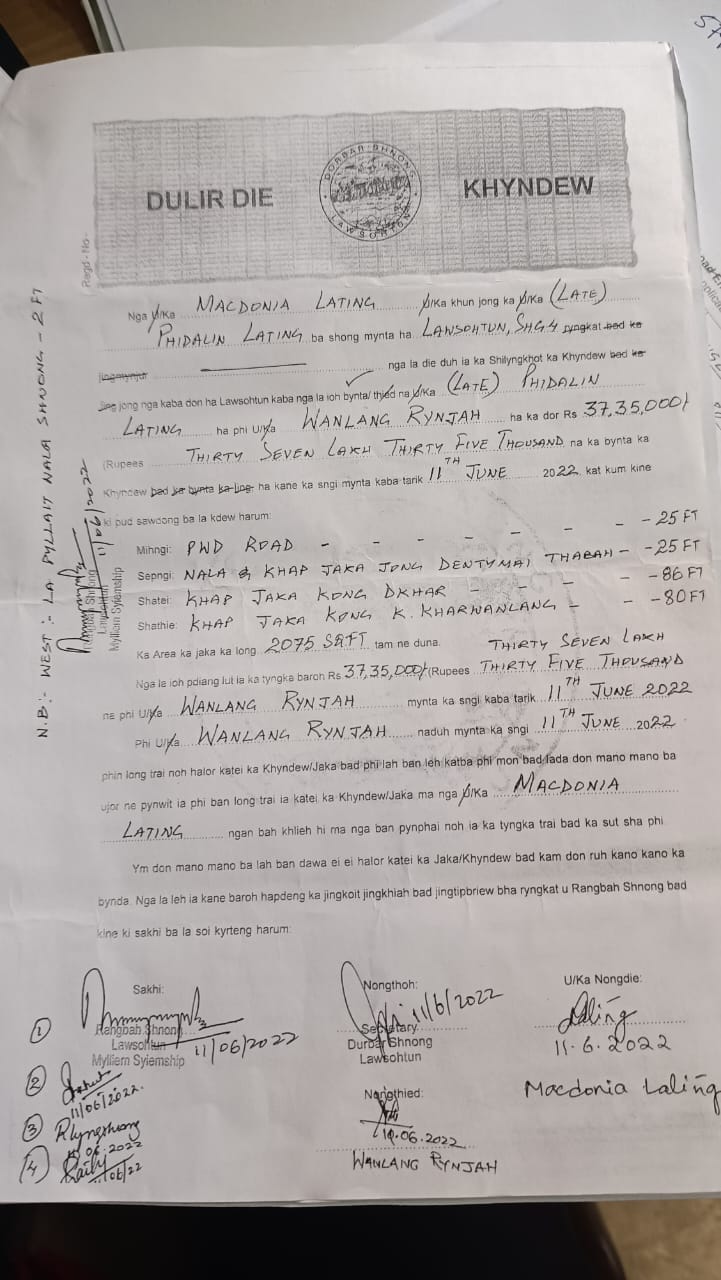 DULIR DIE
DORBAR SHNONG
LAWSOHTUN
KHYNDEW
Regd - No -
Nga U/Ka MACDONIA LATING U/Ka khun jong ka U/Ka (LATE)
PHIDALIN LATING ba shong mynta ha LAWSOHTUN, SHG 4 ryngkat bad ka
jingmynjur nga la die duh ia ka Shilyngkhot ka Khyndew bad ka
Jing jong nga kaba don ha Lawsohtun kaba nga la ioh bynta/ thied na U/Ka (LATE) PHIDALIN
LATING ha phi U/Ka WANLANG RYNJAH ha ka dor Rs 37,35,000/
(Rupees THIRTY SEVEN LAKH THIRTY FIVE THOUSAND na ka bynta ka
Khyndew bad ka bynta ka ling ha kane ka sngi mynta kaba tarik 11TH JUNE 2022 kat kum kine
ki pud sawdong ba la kdew harum:
Mihngi: PWD ROAD - - - - - - - 25 FT
Sepngi: NALA & KHAP JAKA JONG DENTYMAI THABAH - - 25 FT
Shatei: KHAP JAKA KONG DKHAR - - - - 86 FT
Shathie: KHAP JAKA KONG K. KHARWANLANG - - - 80 FT
Ka Area ka jaka ka long 2075 SQ.FT tam ne duna.
Nga la ioh pdiang lut ia ka tyngka baroh Rs 37,35,000/ (Rupees THIRTY SEVEN LAKH THIRTY FIVE THOUSAND
na phi U/Ka WANLANG RYNJAH mynta ka sngi kaba tarik 11TH JUNE 2022
Phi U/Ka WANLANG RYNJAH naduh mynta ka sngi 11TH JUNE 2022
phin long trai noh halor katei ka Khyndew/Jaka bad phi lah ban leh katba phi mon bad lada don mano mano ba
ujor ne pynwit ia phi ban long trai ia katei ka Khyndew/Jaka ma nga U/Ka MACDONIA
LATING ngan bah khlieh hi ma nga ban pynphai noh ia ka tyngka trai bad ka sut sha phi
Ym don mano mano ba lah ban dawa ei ei halor katei ka Jaka/Khyndew bad kam don ruh kano kano ka
bynda. Nga la leh ia kane baroh hapdeng ka jingkoit jingkhiah bad jingtipbriew bha ryngkat u Rangbah Shnong bad
kine ki sakhi ba la soi kyrteng harum:
N.B:- WEST :- LA PYLLAIT NALA SHNONG - 2 FT
11/06/2022
Rangbah Shnong
Lawsohtun
Mylliem Syiemship
Sakhi:
1
Rangbah Shnong
Lawsohtun
Mylliem Syiemship
11/06/2022
2
11/06/2022.
3
06.2022
4
06/22
Nongthoh:
11/6/2022
Secretary
Durbar Shnong
Lawsohtun
Nongthied:
06.2022
WANLANG RYNJAH
U/Ka Nongdie:
Lating
11.6.2022
Macdonia Lating